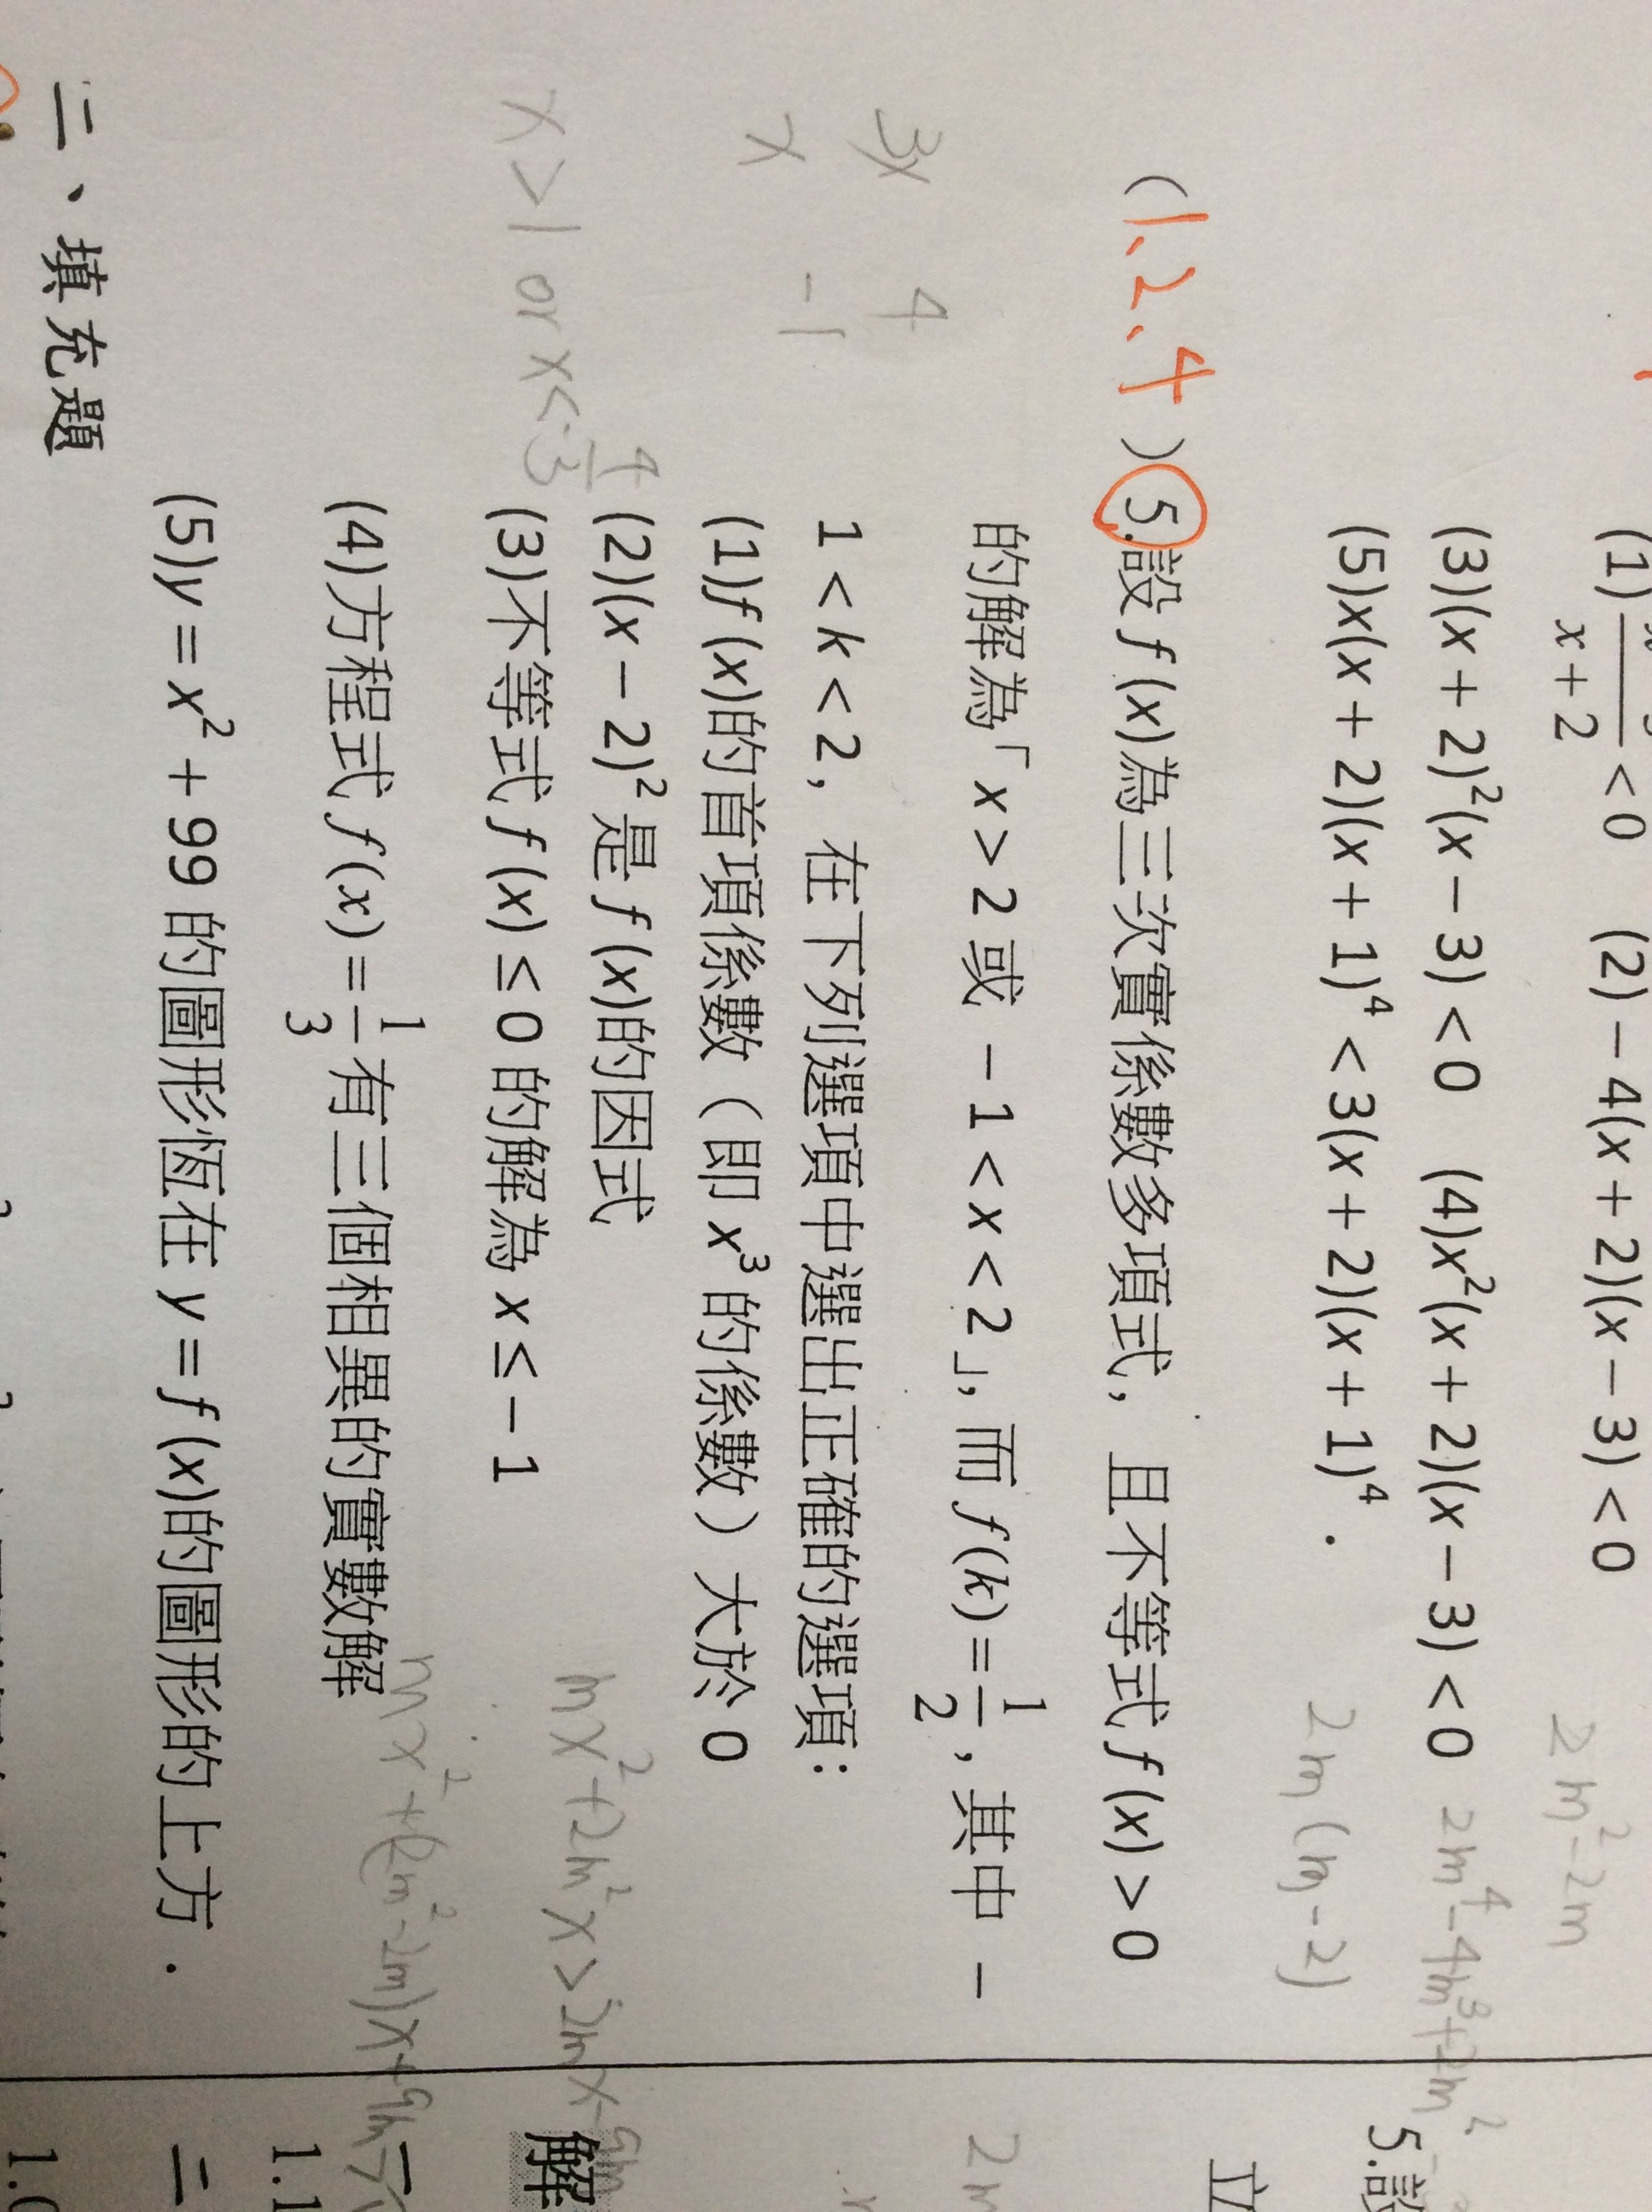 x + 2 < 0 (2) − 4(x + 2)(x − 3) < 0
(3)(x + 2)²(x − 3) < 0 (4)x²(x + 2)(x − 3) < 0
(5)x(x + 2)(x + 1)⁴ < 3(x + 2)(x + 1)⁴．
2m²-2m
2m⁴-4m³+2m²
2m(m-2)
5.設
(1、2、4)5.設 f (x)為三次實係數多項式，且不等式 f (x) > 0
的解為「x > 2 或 − 1 < x < 2」，而 f (k) = 1/2，其中 −
1 < k < 2，在下列選項中選出正確的選項：
(1)f (x)的首項係數（即 x³ 的係數）大於 0
(2)(x − 2)²是 f (x)的因式
(3)不等式 f (x) ≤ 0 的解為 x ≤ − 1
(4)方程式 f (x) = 1/3 有三個相異的實數解
(5)y = x² + 99 的圖形恆在 y = f (x)的圖形的上方．
3x 4
x -1
x>1 or x<-4/3
mx²+2m²x>2mx-9m
mx²+(2m²-2m)x+9m>
解
二、填充題
1.1
二